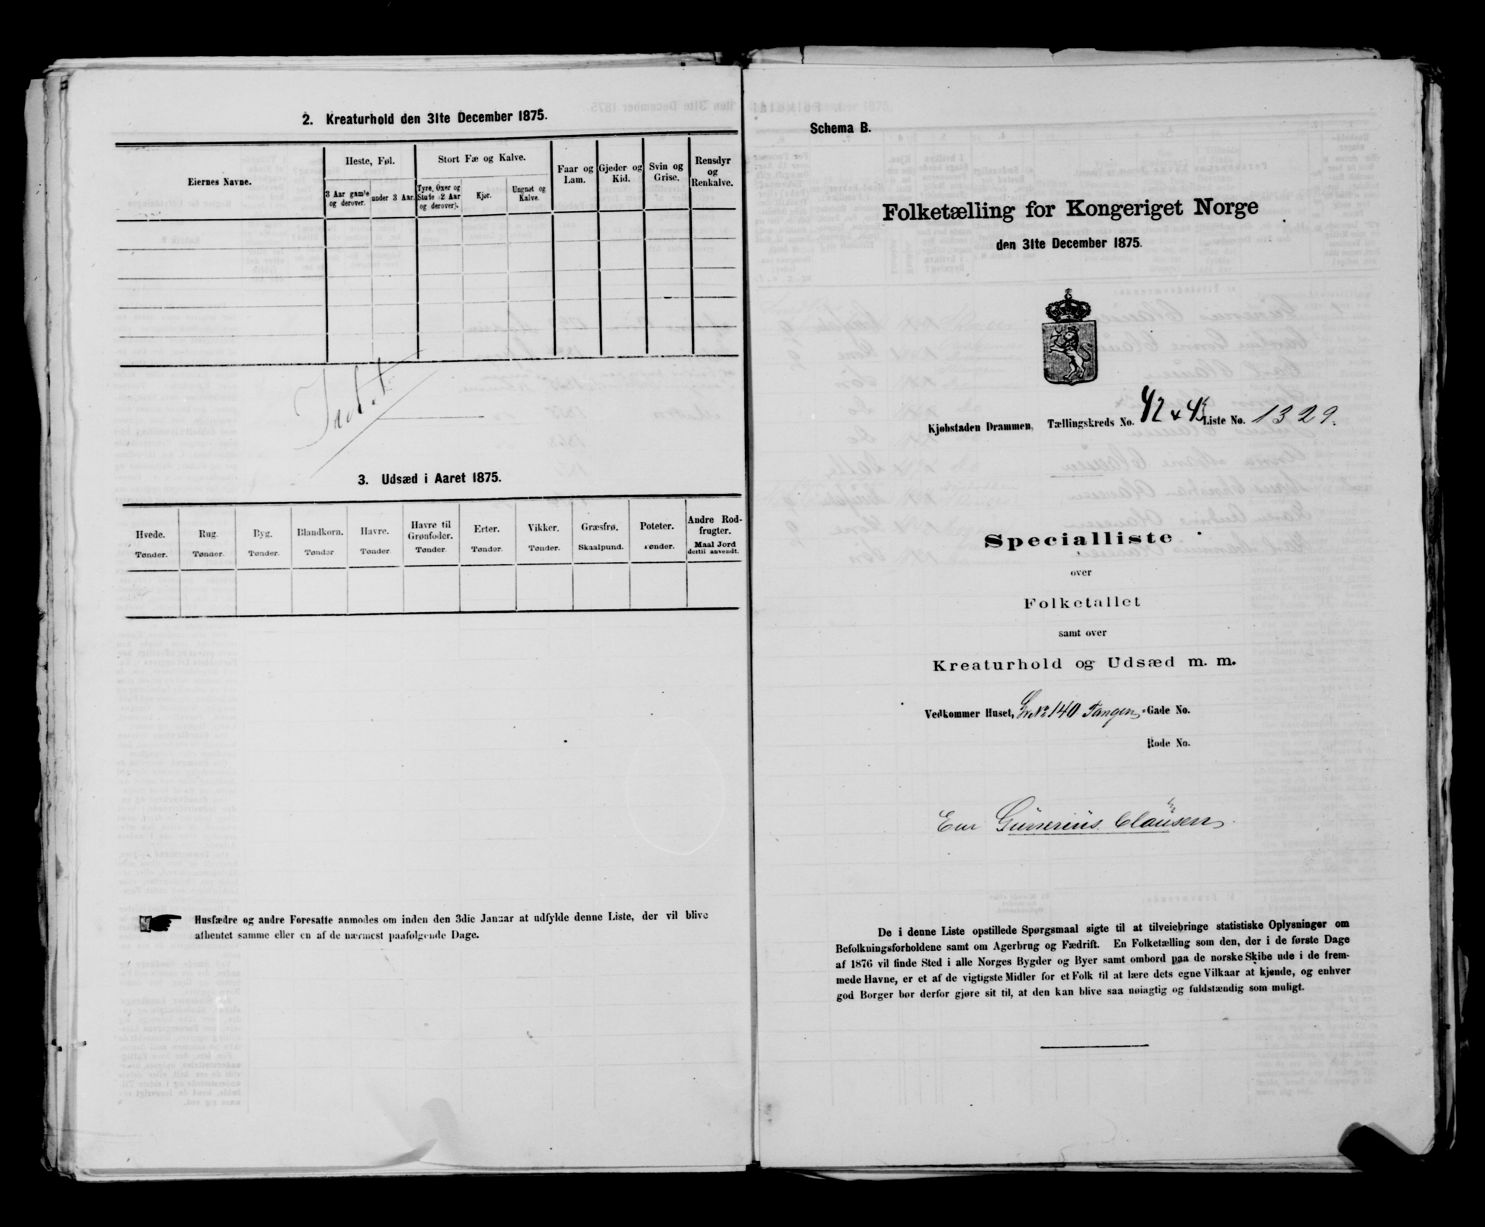 2. Kreaturhold den 31te December 1875.
Eiernes Navne.
Heste, Føl.
Stort Fæ og Kalve.
Faar og Lam.
Gjeder og Kid.
Svin og Grise.
Rensdyr og Renkalve.
3 Aar gamle og derover.
under 3 Aar.
Tyre, Oxer og Stude (2 Aar og derover).
Kjør.
Ungnøt og Kalve.
3. Udsæd i Aaret 1875.
Hvede.
Rug.
Byg.
Blandkorn.
Havre.
Havre til Grønfoder.
Erter.
Vikker.
Græsfrø.
Poteter.
Andre Rodfrugter.
Tønder.
Tønder.
Tønder.
Tønder
Tønder
Tønder.
Tønder.
Tønder.
Skaalpund.
Tønder.
Maal Jord dertil anvendt.
Husfædre og andre Foresatte anmodes om inden den 3die Januar at udfylde denne Liste, der vil blive
afhentet samme eller en af de nærmest paafølgende Dage.
Schema B.
Folketælling for Kongeriget Norge
den 31te December 1875.
Kjøbstaden Drammen, Tællingskreds No. 42 & 43 Liste No. 1329.
Specialliste
over
Folketallet
samt over
Kreaturhold og Udsæd m. m.
Vedkommer Huset, Gr No 140 Tangen -Gade No.
Rode No.
Eier Gunerius Clausen
De i denne Liste opstillede Spørgsmaal sigte til at tilveiebringe statistiske Oplysninger om
Befolkningsforholdene samt om Agerbrug og Fædrift. En Folketælling som den, der i de første Dage
af 1876 vil finde Sted i alle Norges Bygder og Byer samt ombord paa de norske Skibe ude i de frem-
mede Havne, er et af de vigtigste Midler for et Folk til at lære dets egne Vilkaar at kjende, og enhver
god Borger bør derfor gjøre sit til, at den kan blive saa nøiagtig og fuldstændig som muligt.